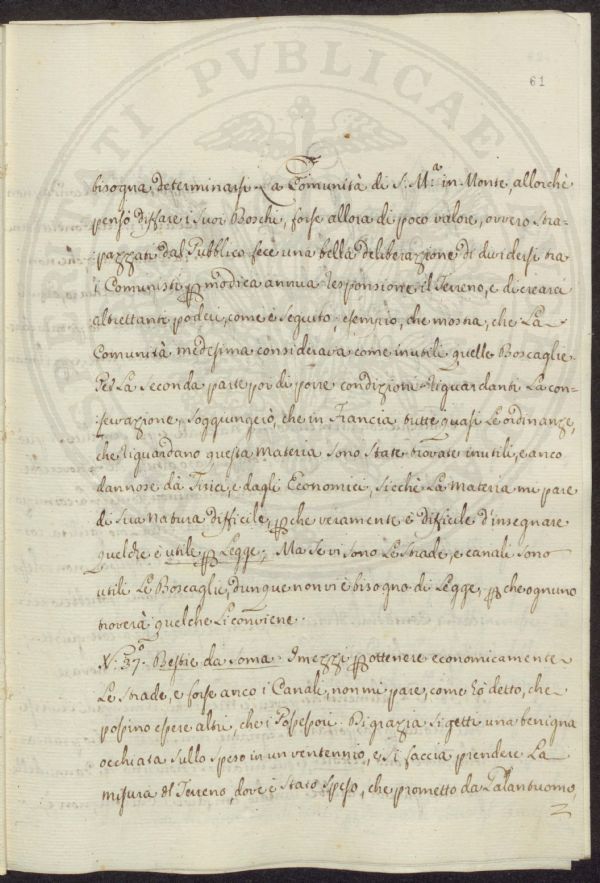 61
bisogna determinarsi. La Comunità di S. M.a in Monte, allorchè
pensò disfare i suoi Boschi, forse allora di poco valore, ovvero stra=
pazzati dal Pubblico fece una bella deliberazione di dividersi tra
i Comunisti p modica annua responsione il Terreno, e di crearci
altrettanti poderi, come è seguito, esempio, che mostra, che La
Comunità medesima considerava come inutili quelle Boscaglie.
Per La seconda parte poi di porre condizioni riguardanti La con=
servazione, soggiungerò, che in Francia tutte quasi Le ordinanze,
che riguardano questa materia sono state trovate inutili, e anco
dannose dà Fisici, e dagli Economici, sicchè La materia mi pare
di sua natura difficile, p che veramente è difficile d'insegnare
quelch'è utile p Legge; Ma se vi sono Le strade, e canali sono
utili Le Boscaglie, dunque non vi è bisogno di Legge, p che ognuno
troverà quelche Li conviene.
N.o 37. Bestie da soma. I mezzi p ottenere economicamente
Le strade, e forse anco i Canali, non mi pare, come hò detto, che
possino essere altri, che i Possessori. Di grazia si getti una benigna
occhiata sullo speso in un ventennio, e si faccia prendere La
misura del Terreno, dove è stato speso, che prometto da Galantuomo,